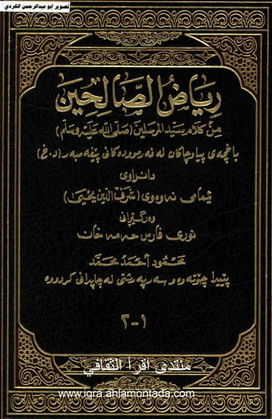 تصوير ابو عبدالرحمن الكردي
رياض الصالحين
من كلام سيد المرسلين (صلى الله عليه وسلم)
باخچەی پیاوچاکان لە فەرموودەکانی پێغەمبەر (د.خ)
دانراوی
ئیمامی نەوەوی (شرف الدین یحیی)
وەرگێڕانی
نوری فارس حەمە خان
محمود أحمد محمد
پێیدا چۆتەوە و سەرپەرشتی لە چاپدانی کردووە
١-٢
منتدى اقرأ الثقافي
www.iqra.ahlamontada.com